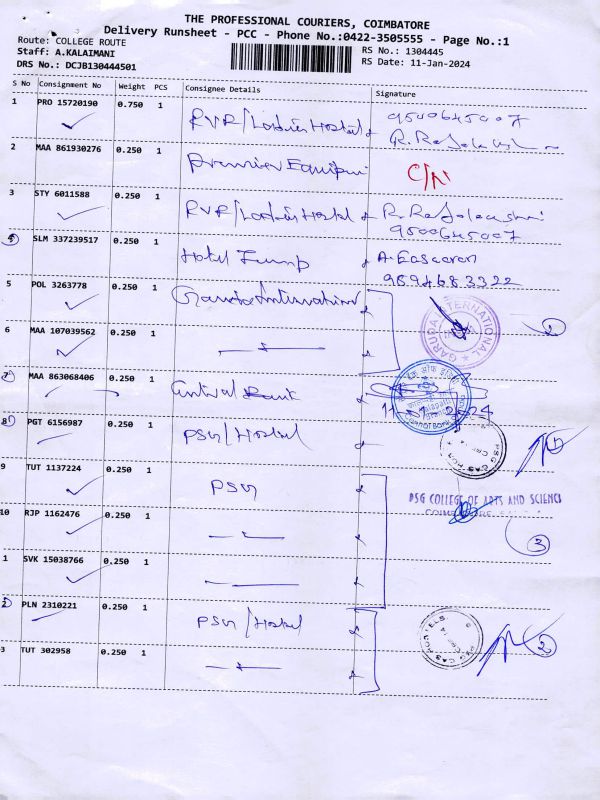 THE PROFESSIONAL COURIERS, COIMBATORE
Delivery Runsheet - PCC - Phone No.:0422-3505555 - Page No.:1
Route: COLLEGE ROUTE RS No.: 1304445
Staff: A.KALAIMANI RS Date: 11-Jan-2024
DRS No.: DCJB130444501
S No Consignment No Weight PCS Consignee Details Signature
1 PRO 15720190 0.750 1 RVR/Ladies Hostel 9500645007
2 MAA 861930276 0.250 1 Premier Equipm
3 STY 6011588 0.250 1 RVR/Ladies Hostel R. Rajalakshmi
9500645007
4 SLM 337239517 0.250 1 Hotel A. Easwaran
9894683322
5 POL 3263778 0.250 1 Garuda International
GARUDA INTERNATIONAL
2
6 MAA 107039562 0.250 1
7 MAA 863068406 0.250 1 Central Bank
8 PGT 6156987 0.250 1 PSG/Hostel
PSG CAS HOSTELS
1
9 TUT 1137224 0.250 1 PSG
PSG COLLEGE OF ARTS AND SCIENCE
10 RJP 1162476 0.250 1
3
1 SVK 15038766 0.250 1
2 PLN 2310221 0.250 1 PSG/Hostel
PSG CAS HOSTELS
2
3 TUT 302958 0.250 1